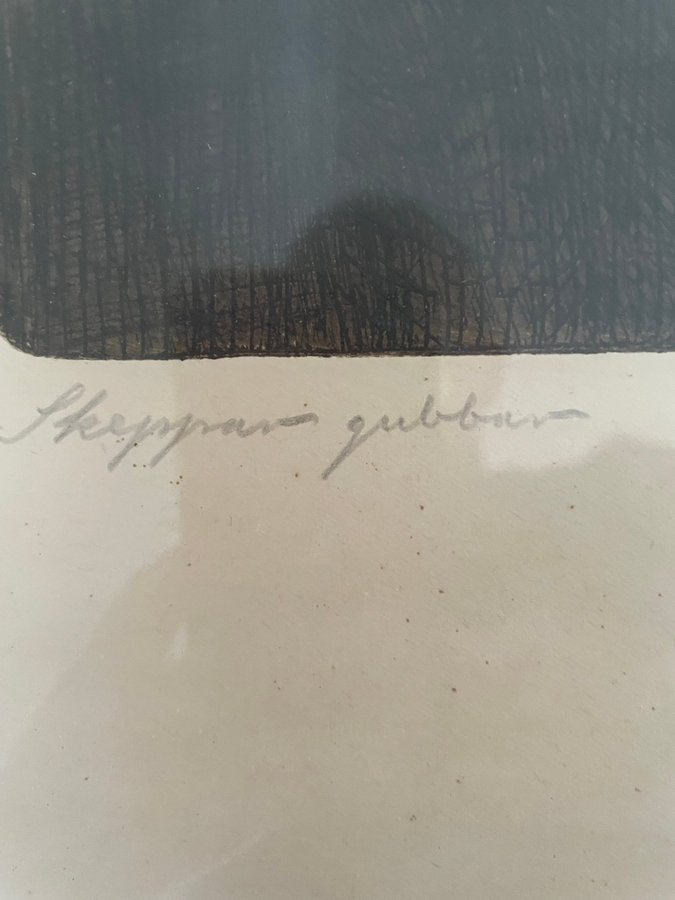 Skeppar gubbar